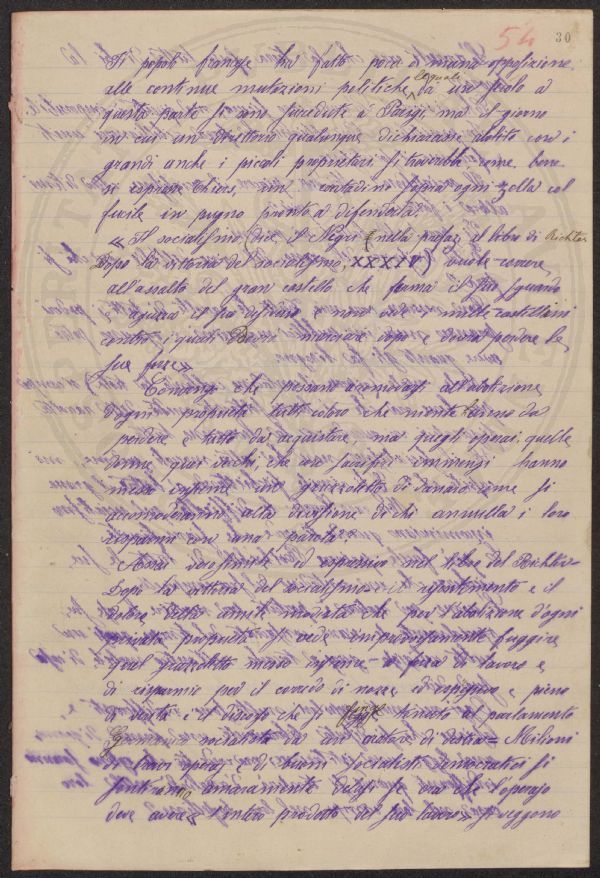 54 30
Il popolo francese ha fatto poca o niuna opposizione
alle continue mutazioni politiche le quali da un secolo a
questa parte si sono succedute a Parigi, ma il giorno
in cui un direttorio qualunque dichiarasse aboliti con i
grandi anche i piccoli proprietari si troverebbe come bene
si esprime un contadino sopra ogni zolla col
fucile in pugno pronto a difenderla.
« Il socialismo (dice il Negri nella prefaz. al libro di Richter
Dopo la vittoria del socialismo, XXXIV) vuole correre
all'assalto del gran castello che forma il suo sguardo
e non vede i mille castellani
contro i quali dovrà marciare dopo e dovrà perdere le
sue forze »
che possano acconciarsi all'abolizione
d'ogni proprietà tutti coloro che niente hanno da
perdere e tutto da acquistare, ma quegli operai, quelle
donne, quei vecchi, che con sacrifici immensi hanno
messo insieme un gruzzoletto di danaro come si
accomoderanno alla decisione di chi annulla i loro
risparmi con una parola?
Assai ed espressivo nel libro del Richter
Dopo la vittoria del socialismo è il risentimento e il
dolore della che per l'abolizione d'ogni
privata proprietà vede improvvisamente fuggire
quel gruzzoletto messo insieme a forza di lavoro e
di risparmio per il corredo di nozze ed e pieno
di verità è il discorso che si finge tenuto al parlamento
da un oratore di destra = Milioni
di operai e di buoni socialisti democratici si
sentirono amaramente delusi se ora che l'operajo
deve avere « l'intero prodotto del suo lavoro » si veggono